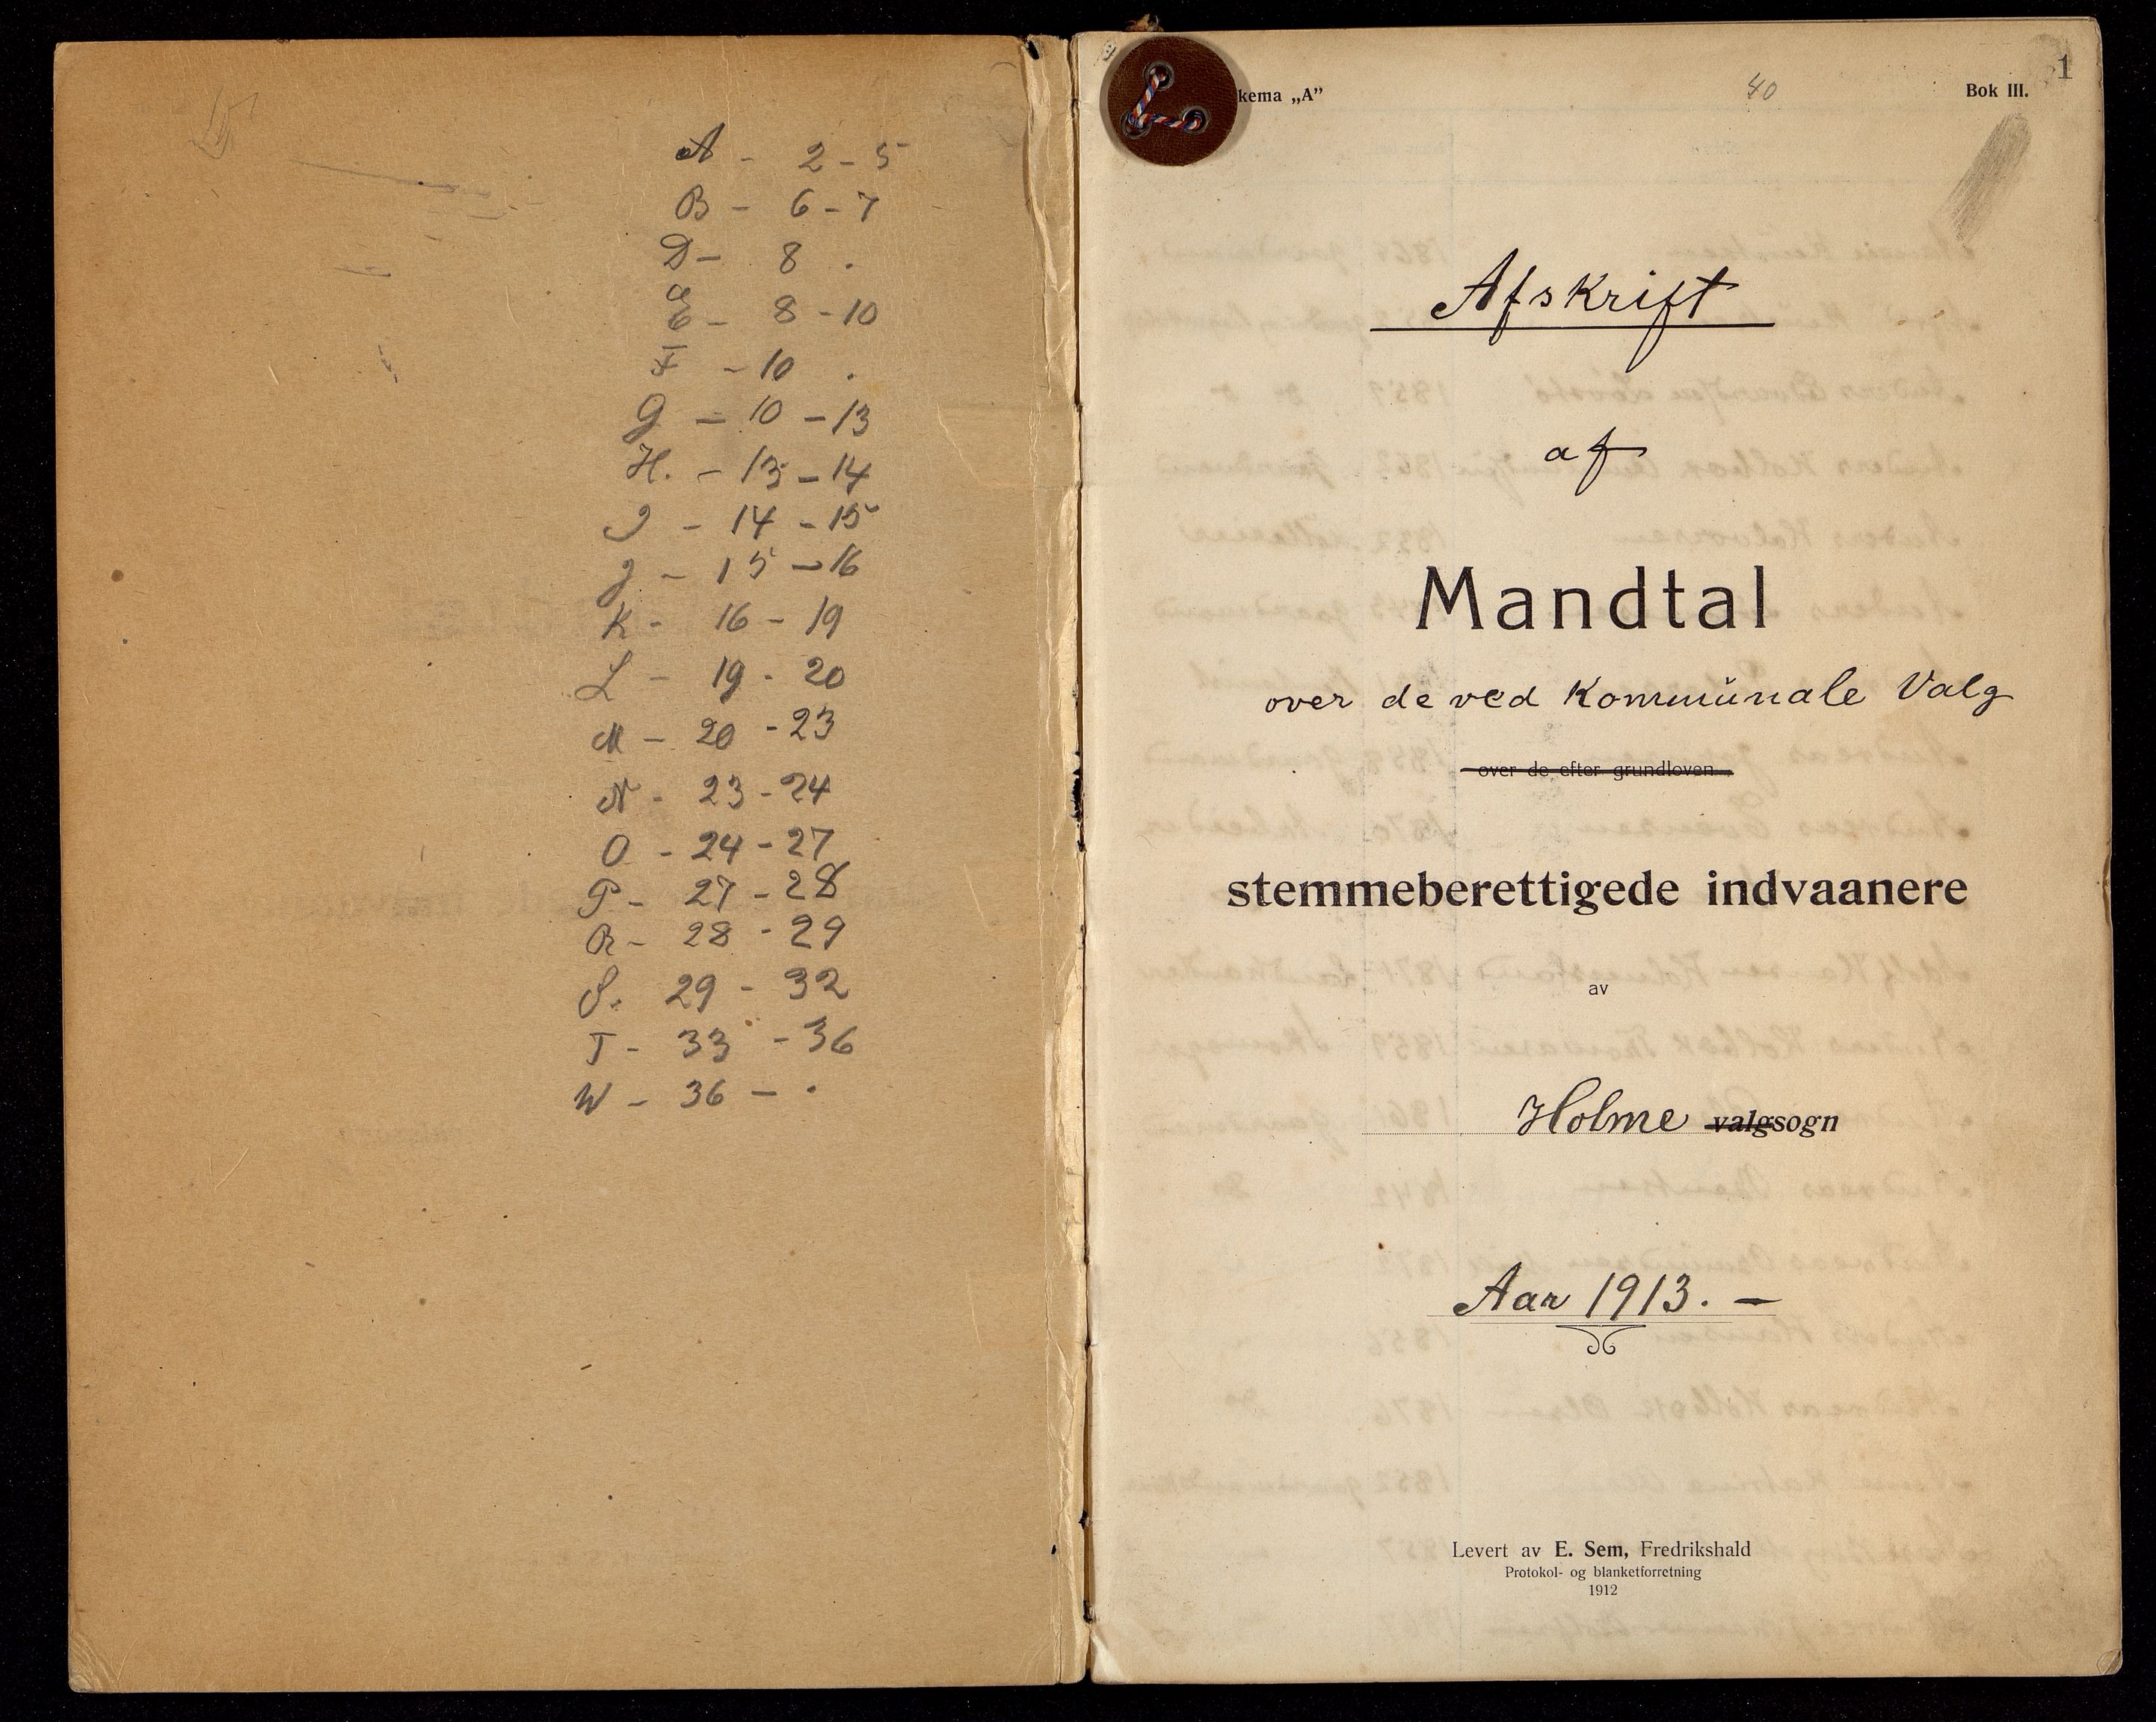 A - 2 - 5
B - 6 - 7
D - 8 .
E - 8 - 10
F - 10 .
G - 10 - 13
H. - 13 - 14
I - 14 - 15
J - 15 - 16
K - 16 - 19
L - 19 - 20
M - 20 - 23
N - 23 - 24
O - 24 - 27
P - 27 - 28
R - 28 - 29
S. 29 - 32
T - 33 - 36
W - 36 - .
1
kema „A”
40
Bok III.
Afskrift
af
Mandtal
over de ved Kommunale Valg
over de efter grundloven
stemmeberettigede indvaanere
av
Holme valgsogn
Aar 1913. —
Levert av E. Sem, Fredrikshald
Protokol- og blanketforretning
1912